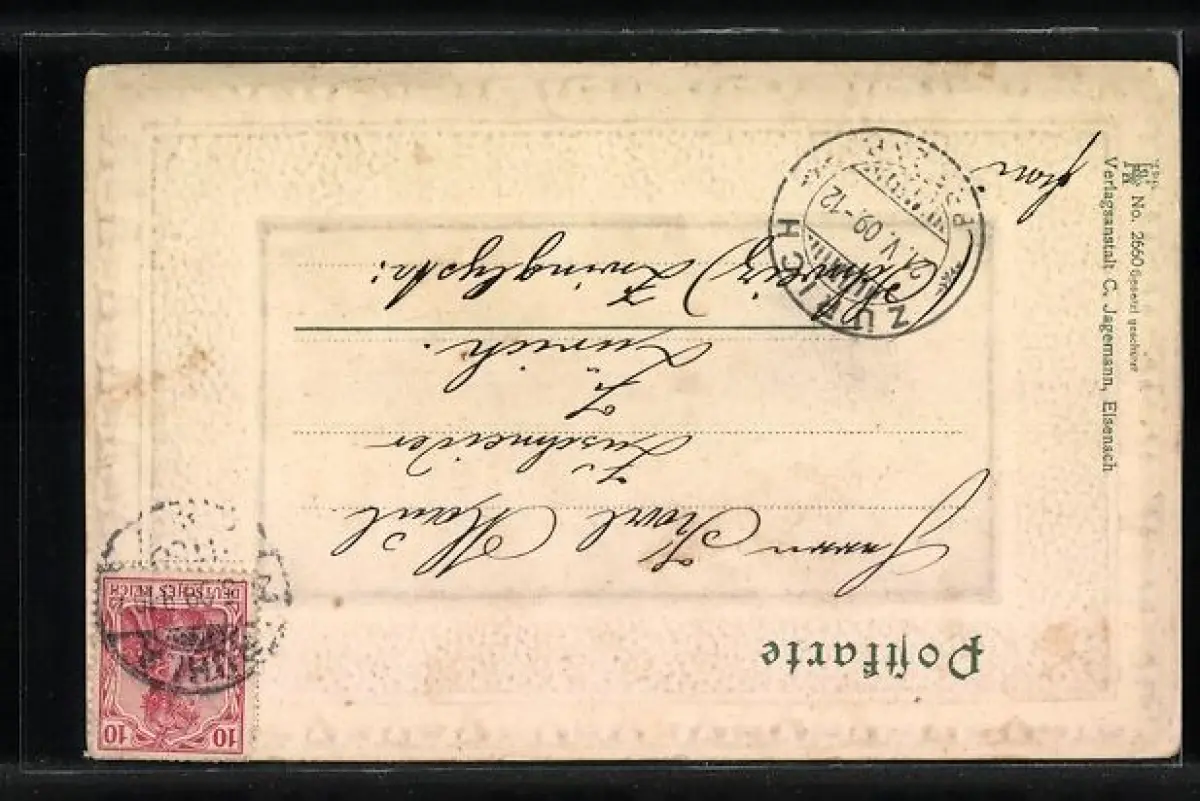 Postkarte
Herrn Karl Maul
Zuschneider
Zürich.
(Schweiz)
ZÜRICH
21.V.09.-12
DEUTSCHES REICH
10 10
No. 2660 Gesetzl geschützt
Verlagsanstalt C. Jagemann, Eisenach